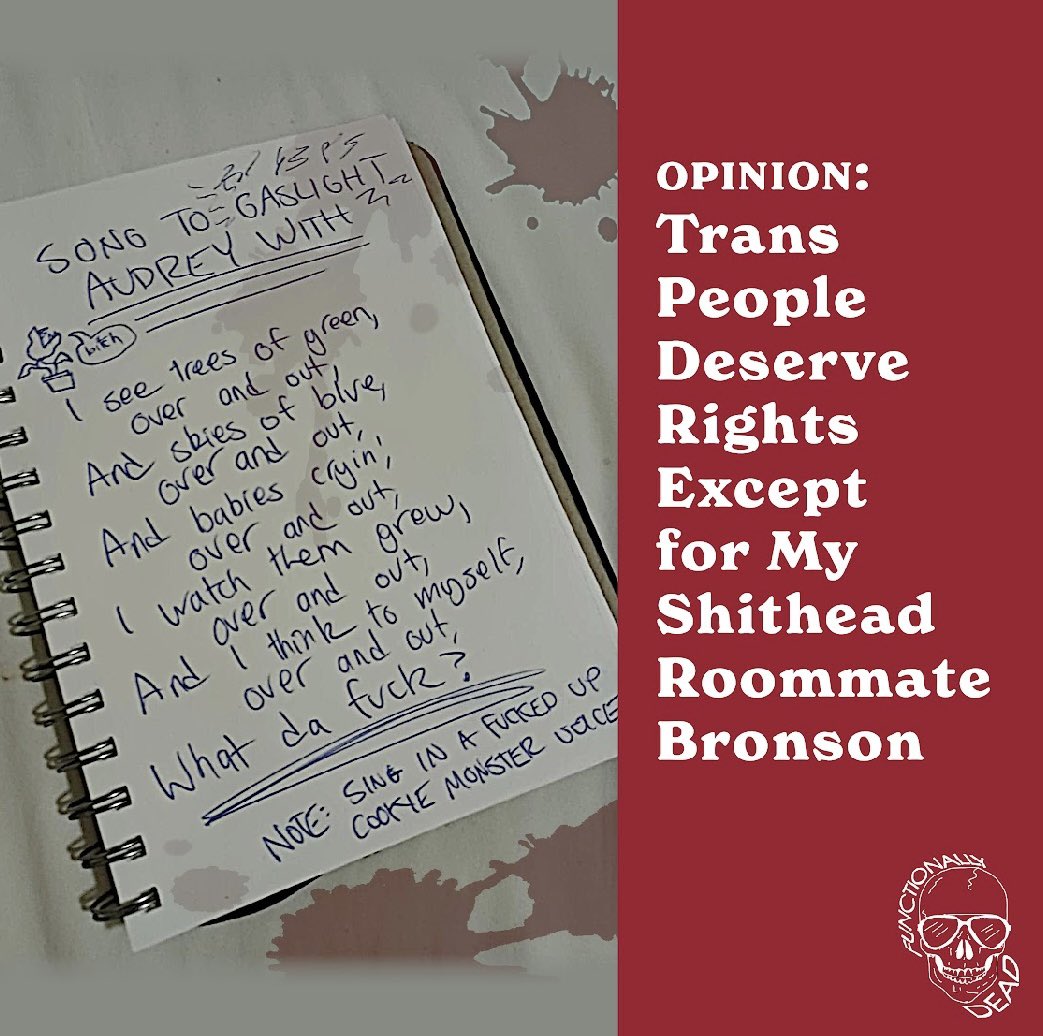 SONG TO GASLIGHT
AUDREY WITH
bitch
I see trees of green,
over and out,
And skies of blue,
over and out,
And babies cryin',
over and out,
I watch them grew,
over and out,
And I think to myself,
over and out,
What da fuck?
NOTE: SING IN A FUCKED UP
COOKIE MONSTER VOICE
OPINION:
Trans
People
Deserve
Rights
Except
for My
Shithead
Roommate
Bronson
FUNCTIONALLY
DEAD